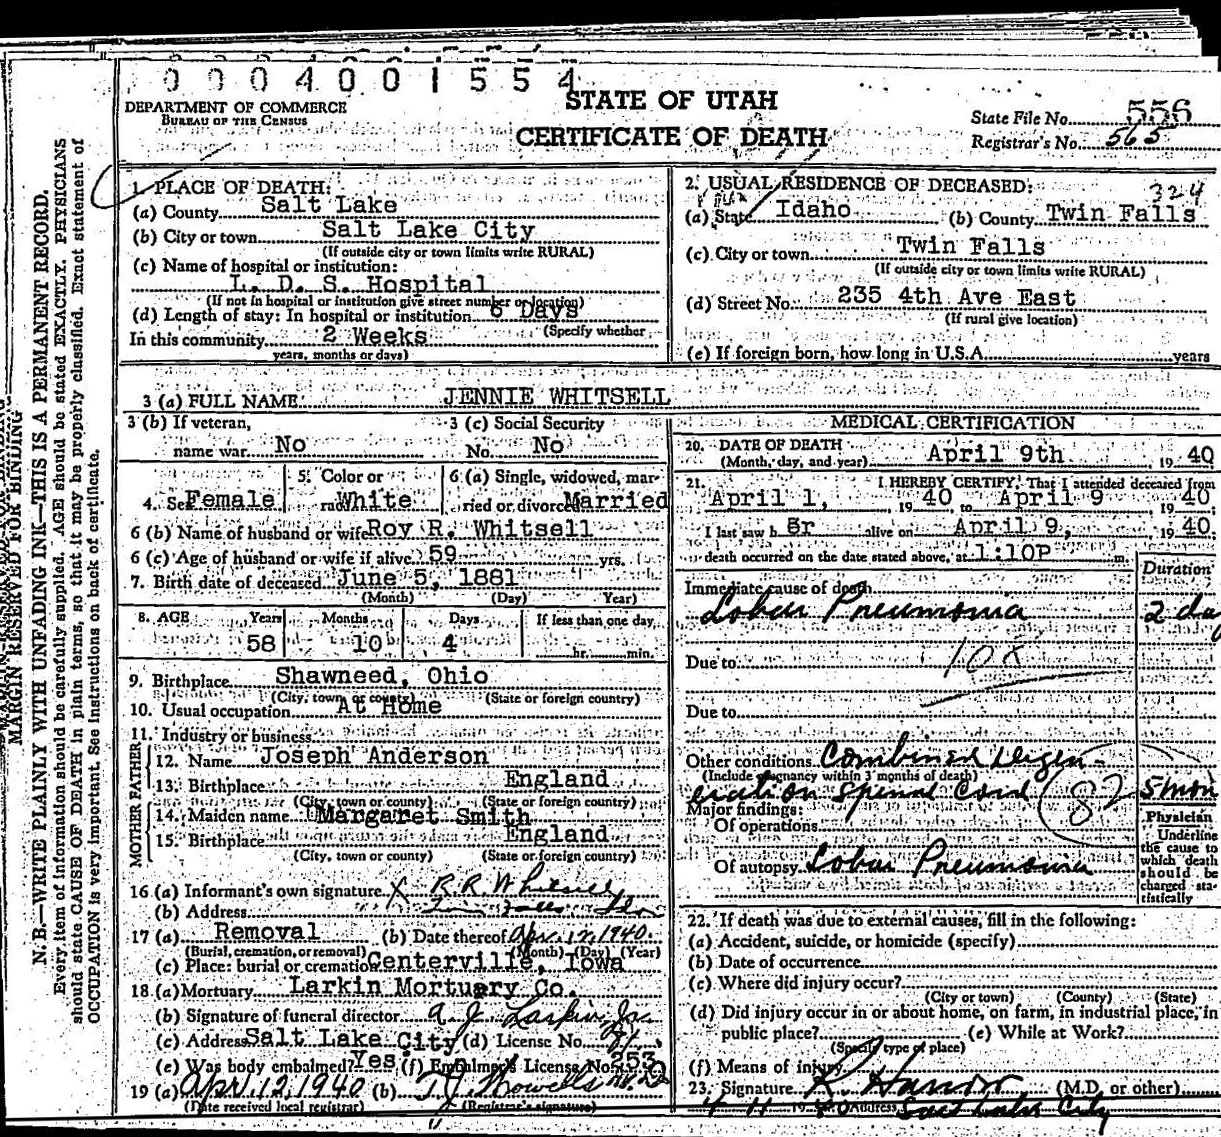 0 0 0 4 0 0 1 5 5 4
DEPARTMENT OF COMMERCE
BUREAU OF THE CENSUS
STATE OF UTAH
CERTIFICATE OF DEATH
State File No. 556
Registrar's No. 565
1. PLACE OF DEATH:
(a) County Salt Lake
(b) City or town Salt Lake City
(If outside city or town limits write RURAL)
(c) Name of hospital or institution:
L. D. S. Hospital
(If not in hospital or institution give street number or location)
(d) Length of stay: In hospital or institution 8 Days
(Specify whether
In this community 2 Weeks
years, months or days)
2. USUAL RESIDENCE OF DECEASED:
324
(a) State Idaho (b) County Twin Falls
(c) City or town Twin Falls
(If outside city or town limits write RURAL)
(d) Street No. 235 4th Ave East
(If rural give location)
(e) If foreign born, how long in U.S.A. years
3 (a) FULL NAME JENNIE WHITSELL
3 (b) If veteran,
name war No
3 (c) Social Security
No. No
4. Sex Female
5. Color or
race White
6 (a) Single, widowed, mar-
ried or divorced Married
6 (b) Name of husband or wife Roy R. Whitsell
6 (c) Age of husband or wife if alive 59 yrs.
7. Birth date of deceased June 5, 1881
(Month) (Day) Year)
8. AGE Years Months Days If less than one day
58 10 4 hr. min.
9. Birthplace Shawneed, Ohio
(City, town or county) (State or foreign country)
10. Usual occupation At Home
11. Industry or business
FATHER
12. Name Joseph Anderson
13. Birthplace England
(City, town or county) (State or foreign country)
MOTHER
14. Maiden name Margaret Smith
15. Birthplace England
(City, town or county) (State or foreign country)
16 (a) Informant's own signature X R.R. Whitsell
(b) Address Twin Falls Ida
17 (a) Removal (b) Date thereof Apr. 12, 1940.
(Burial, cremation, or removal) (Month) (Day) (Year)
(c) Place: burial or cremation Centerville, Iowa
18 (a) Mortuary Larkin Mortuary Co.
(b) Signature of funeral director A. J. Larkin, Inc
(c) Address Salt Lake City (d) License No.
(e) Was body embalmed? Yes. (f) Embalmer's License No. 253
19 (a) Apr. 12, 1940 (b) T. J. Howells
(Date received local registrar) (Registrar's signature)
MEDICAL CERTIFICATION
20. DATE OF DEATH
(Month, day, and year) April 9th 1940
21. I HEREBY CERTIFY, That I attended deceased from
April 1, 1940 to April 9 1940
I last saw h er alive on April 9, 1940.
death occurred on the date stated above, at 1:10P
Duration
Immediate cause of death
Lobar Pneumonia 2 day
Due to
Due to
Other conditions Combined degen-
(Include pregnancy within 3 months of death)
eration Spinal Cord 82 5 mon
Major findings:
Of operations
Of autopsy Lobar Pneumonia
Physician
Underline
the cause to
which death
should be
charged sta-
tistically
22. If death was due to external causes, fill in the following:
(a) Accident, suicide, or homicide (specify)
(b) Date of occurrence
(c) Where did injury occur?
(City or town) (County) (State)
(d) Did injury occur in or about home, on farm, in industrial place, in
public place? (e) While at Work?
(Specify type of place)
(f) Means of injury
23. Signature (M.D. or other)
4 11 1940 Address Salt Lake City
MARGIN RESERVED FOR BINDING
N. B.—WRITE PLAINLY WITH UNFADING INK—THIS IS A PERMANENT RECORD.
Every item of information should be carefully supplied. AGE should be stated EXACTLY. PHYSICIANS
should state CAUSE OF DEATH in plain terms, so that it may be properly classified. Exact statement of
OCCUPATION is very important. See instructions on back of certificate.